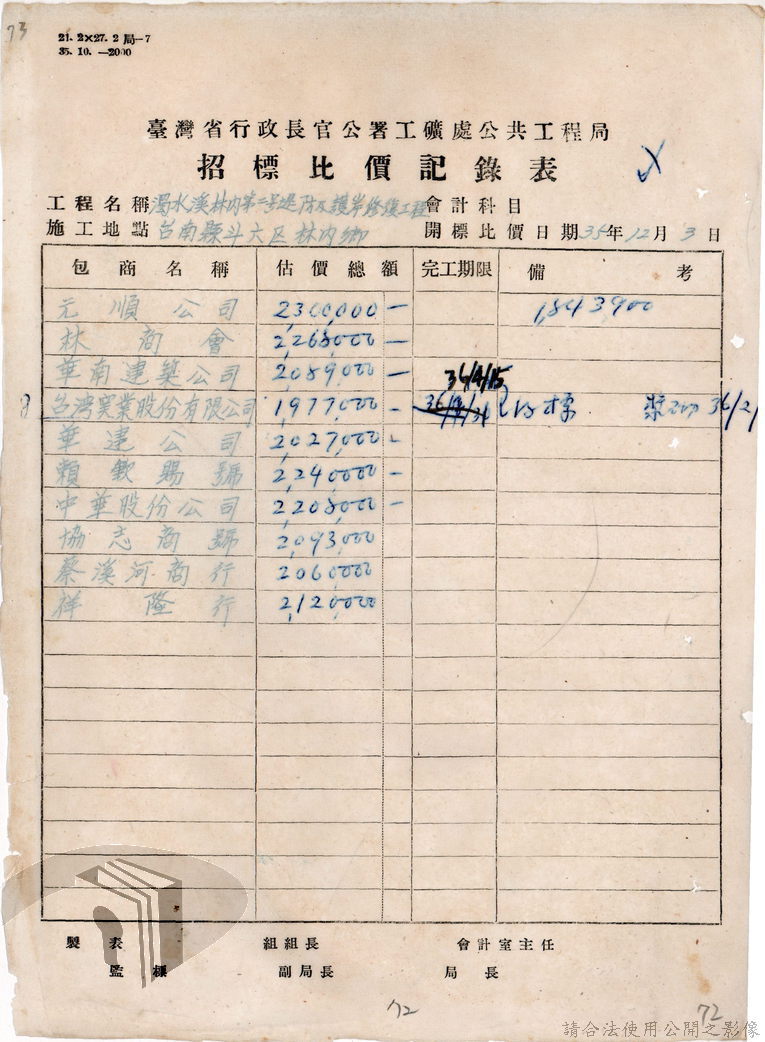 73
21. 2×27. 2 局—7
35. 10. —2000
臺灣省行政長官公署工礦處公共工程局
招標比價記錄表
工程名稱 濁水溪林內第二号堤防及護岸修復工程 會計科目
施工地點 台南縣斗六區林內鄉 開標比價日期 35年12月3日
包商名稱 估價總額 完工期限 備考
元順公司 2,300,000— 1,843,900
林商會 2,268,000—
華南建築公司 2,089,000—
36/4/15
台湾窯業股份有限公司 1,977,000— 得標 36/2/
華建公司 2,027,000-
賴欽賜號 2,240,000—
中華股份公司 2,208,000-
協志商號 2,093,000
蔡漢河商行 2,060,000
祥隆行 2,120,000
製表 組組長 會計室主任
監標 副局長 局長
72
72
請合法使用公開之影像